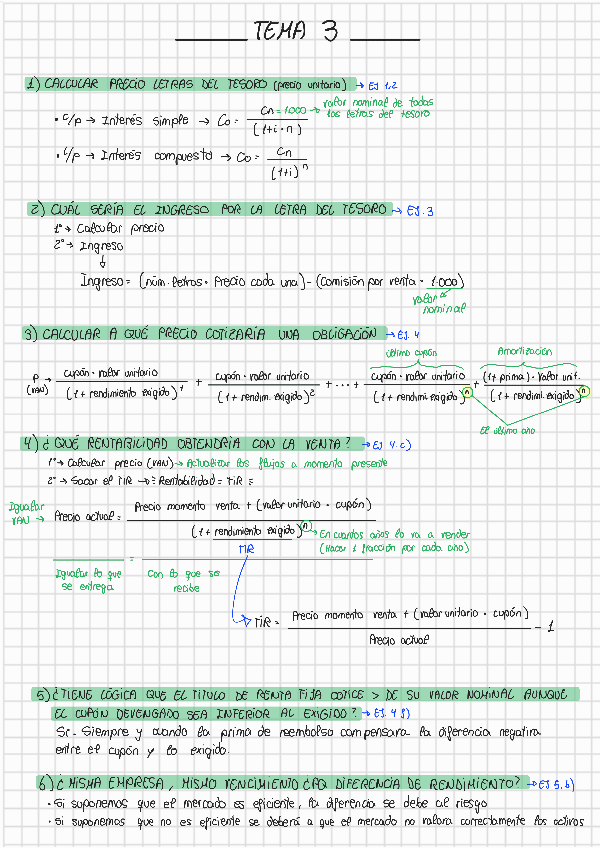 TEMA 3
1) CALCULAR PRECIO LETRAS DEL TESORO (precio unitario) → EJ 1,2
• C/p → Interés simple → Co = Cn = 1.000 → valor nominal de todas
las letras del tesoro
(1+i·n)
• L/p → Interés compuesto → Co = Cn
(1+i)^n
2) CUÁL SERÍA EL INGRESO POR LA LETRA DEL TESORO → EJ. 3
1º → Calcular precio
2º → Ingreso
↓
Ingreso = (núm. letras · Precio cada una) - (Comisión por venta · 1.000)
valor
nominal
3) CALCULAR A QUÉ PRECIO COTIZARÍA UNA OBLIGACIÓN → EJ. 4
último cupón Amortización
P → (VAN) cupón · valor unitario + cupón · valor unitario + ... + cupón · valor unitario + (1 + prima) · Valor unit.
(1 + rendimiento exigido)^1 (1 + rendim. exigido)^2 (1 + rendimi. exigido)^n (1 + rendimi. exigido)^n
El último año
4) ¿QUÉ RENTABILIDAD OBTENDRÍA CON LA VENTA? → EJ 4.c)
1º → Calcular precio (VAN) → Actualizar los flujos a momento presente
2º → Sacar el TIR → Rentabilidad = TIR =
Igualar
VAN → Precio actual = Precio momento venta + (valor unitario · cupón)
(1 + rendimiento exigido)^n → En cuantos años lo va a vender
TIR (Hacer 1 fracción por cada año)
=
Igualar lo que Con lo que se
se entrega recibe
TIR = Precio momento venta + (valor unitario · cupón) - 1
Precio actual
5) ¿TIENE LÓGICA QUE EL TITULO DE RENTA FIJA COTICE > DE SU VALOR NOMINAL AUNQUE
EL CUPÓN DEVENGADO SEA INFERIOR AL EXIGIDO? → EJ. 4 f)
Sí - Siempre y cuando la prima de reembolso compensara la diferencia negativa
entre el cupón y lo exigido.
6) ¿MISMA EMPRESA, MISMO VENCIMIENTO ¿PQ DIFERENCIA DE RENDIMIENTO? → EJ 5.b)
• Si suponemos que el mercado es eficiente, la diferencia se debe al riesgo
• Si suponemos que no es eficiente se deberá a que el mercado no valora correctamente los activos